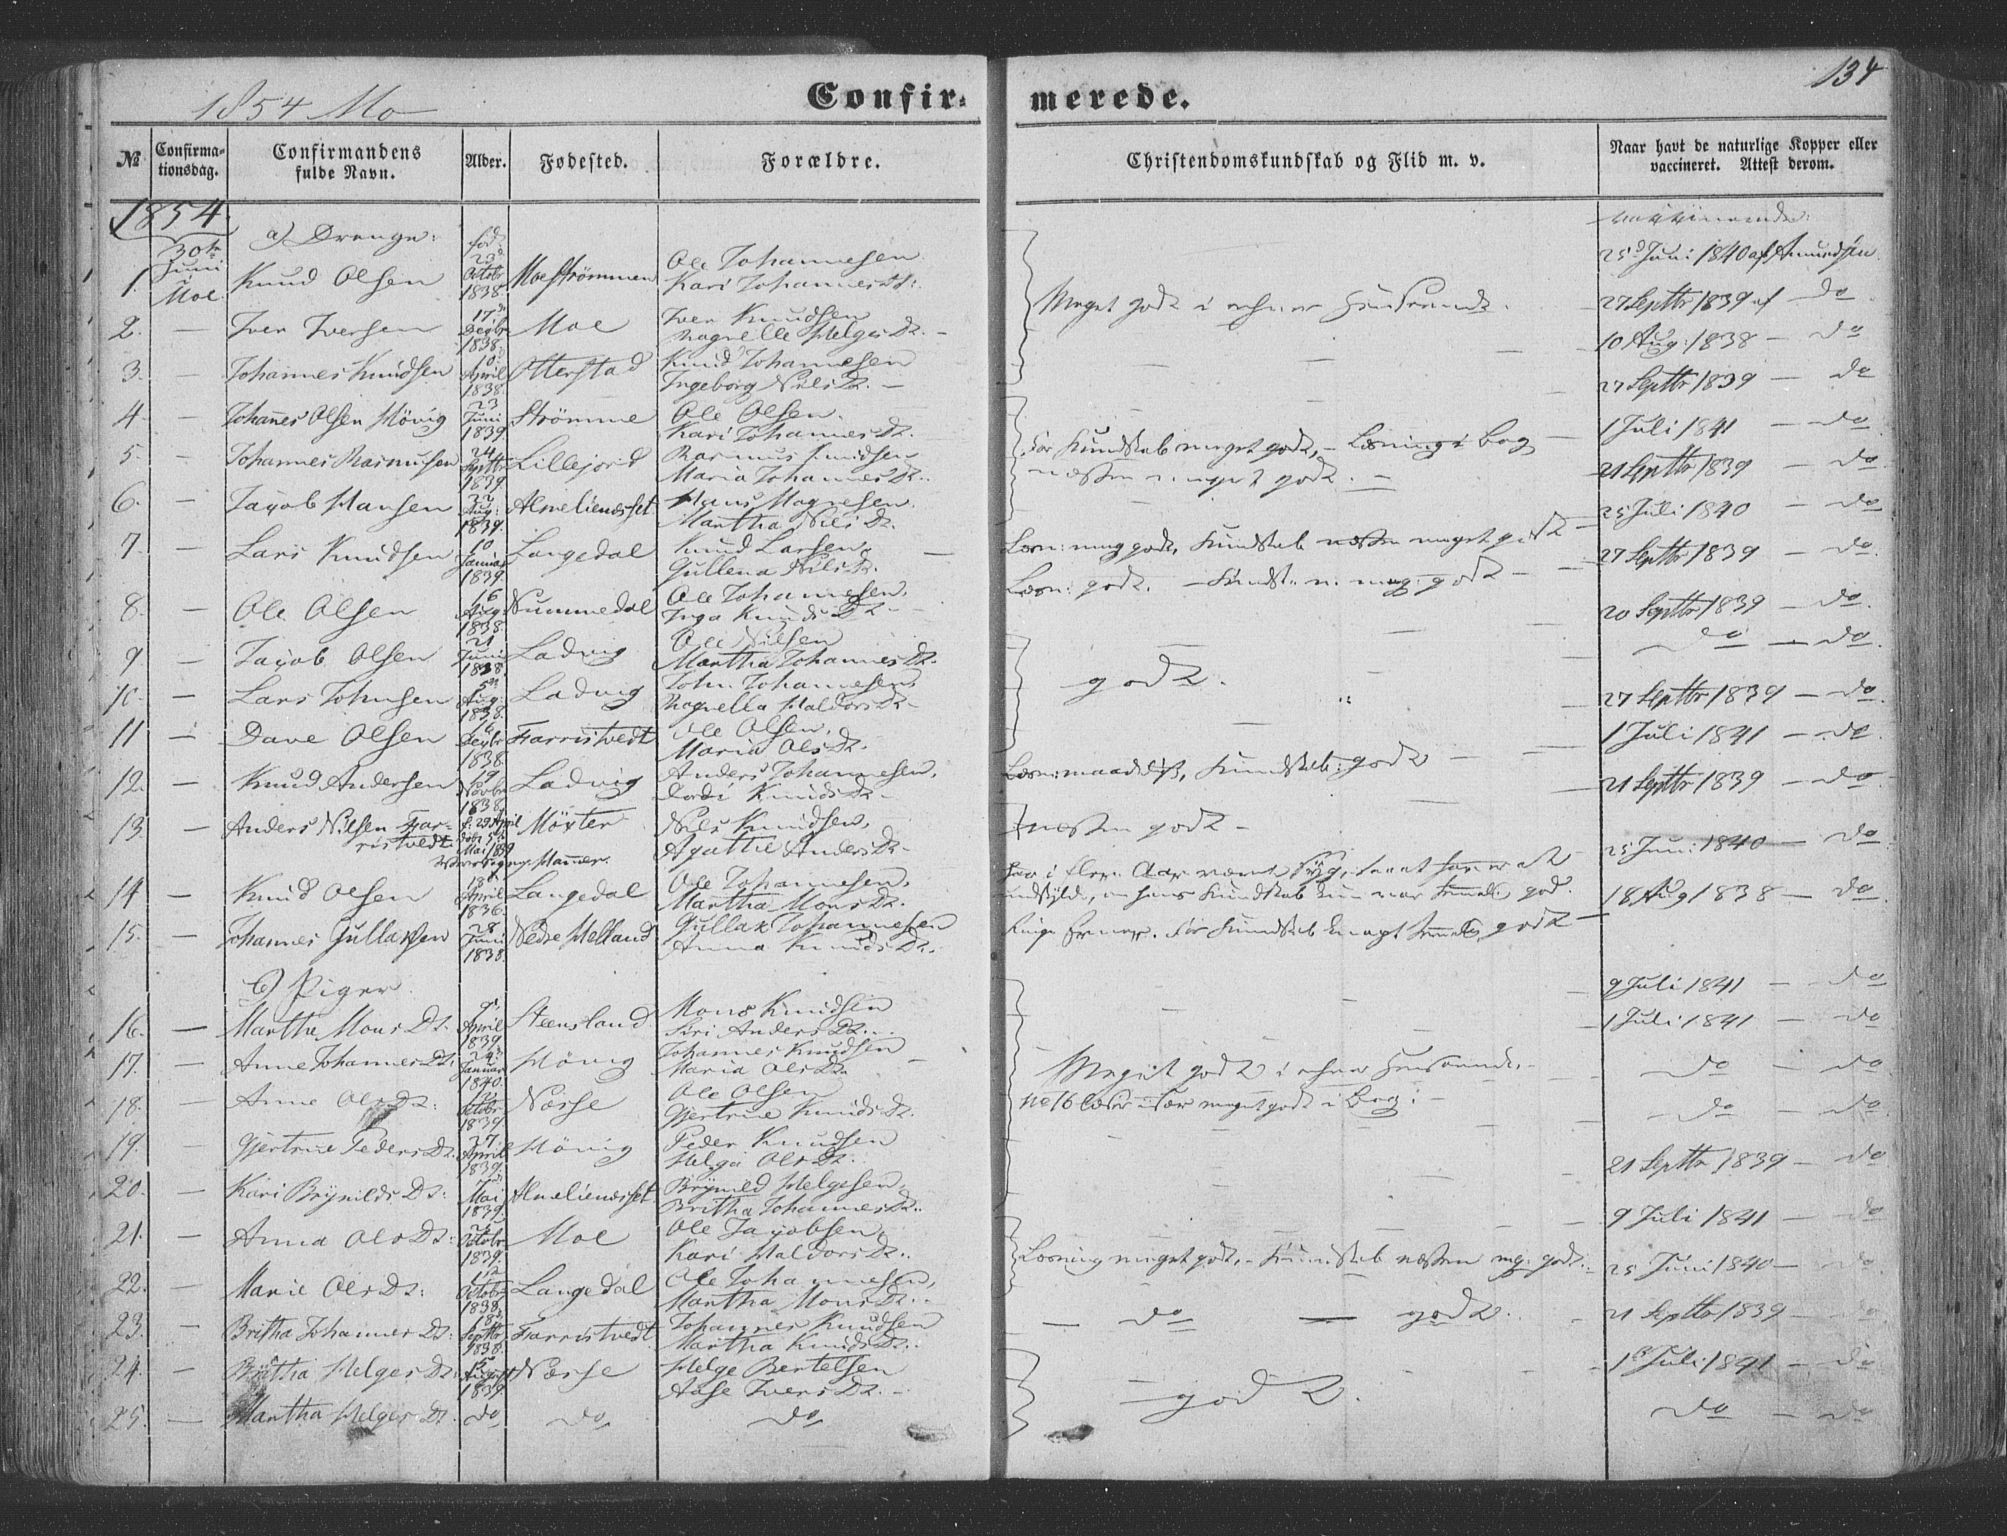 134
1854 Mo
Confir- merede.
№ Confirma-tionsdag. Confirmandens fulde Navn. Alder. Fødested. Forældre. Christendomskundskab og Flid m. v. Naar havt de naturlige Kopper eller vaccineret. Attest derom.
1854
a) Drenge:
1. 30te Juni Moe Knud Olsen fød. 23d Octobr 1838 Moestrømmen Ole Johannesen Kari Johannes Dt: 25d Juni 1840 af Amundsen
2. — Iver Iversen 17de Decbr 1838 Moe Iver Knudsen Ragnelle Helges Dt. — Meget godt i Henseende. 27 Septbr 1839 af do
3. — Johannes Knudsen 10 April 1838 Otterstad Knud Johannesen Ingeborg Nils Dt. — 10 Aug: 1838 — do
4. — Johanes Olsen Høvig 23 Juni 1839 Strømme Ole Olsen. Kari Johannes Dt. 27 Septbr 1839 — do
5. — Johannes Rasmusen 24 Septbr 1839 Lillejord Rasmus Knudsen Maria Johannes Dt. Kundskab meget godt, — Læsning i Bog næsten meget godt. — 1 Juli 1841 — do
6. — Jacob Hansen 22 Aug: 1839 Almelienesset Hans Magnesen Martha Nils Dt. 21 Septbr 1839 — do
7. — Lars Knudsen 10 Januar 1839 Langedal Knud Larsen Gullena Nils Dt. Læsn: meg godt, Kundskab næsten meget godt — 25 Juli 1840 — do
8. — Ole Olsen 16 Aug: 1838 Nummedal Ole Johannesen, Inga Knuds Dt. — Læsn: godt. — Kundsk: n. meg: godt — 27 Septbr 1839 — do
9. — Jacob Olsen 21 Juni 1838 Ladvig Ole Nilsen Martha Johannes Dt. 20 Septbr 1839 — do
10. — Lars Johnsen 5te Aug: 1838 Ladvig John Johannesen, Ragnella Haldors Dt — godt. do — do
11. — Dave Olsen 16 Decbr 1838 Farristvedt Ole Olsen, Maria Ols Dt. 27 Septbr 1839 — do
12. — Knud Andersen 19 Novbr 1838 Ladvig Anders Johannesen, Dordi Knuds Dt — Læsn: maadelig, Kundskab: godt — 1 Juli 1841 — do
13 — Anders Nilsen Farristvedt f. 29 April døbt 5te Mai 1839 Møxter Nils Knudsen, Agathe Anders Dt — næsten godt — 21 Septbr 1839 — do
14 — Knud Olsen 18 April 1836 Langedal Ole Johannesen, Martha Mons Dt. Har i flere Aar været 25 Juni 1840 — do
15. — Johannes Gullaksen 28 Juni 1838 Nedre Helland Gullak Johannesen Anna Knuds Dt. 18 Aug 1838 — do
b) Piger.
16. — Martha Mons Dt. 9de April 1839 Steensland Mons Knudsen Siri Anders Dt. 9 Juli 1841 — do
17. — Anne Johannes Dt: 24 Januar 1840 Høvig Johannes Knudsen Maria Ols Dt. 1 Juli 1841 — do
18. — Anne Ols Dt: Octobr 1839 Næsse Ole Olsen Gjertrue Knuds Dt. Meget godt i Henseende. — do — do
19. — Gjertrue Peders Dt. 27 April 1839 Høvig Peder Knudsen Helga Ols Dt. No 16 læser især meget godt i Bog: — do — do
20. — Kari Brynilds Dt: Mai 1839 Almelienesset Brynild Helgesen, Britha Johannes Dt. 21 Septbr 1839 — do
21. — Anna Ols Dt: Octobr 1839 Moe Ole Jacobsen, Kari Haldors Dt. 9 Juli 1841 — do
22. — Marie Ols Dt: 12 Octobr 1838 Langedal Ole Johannesen, Martha Mons Dt. Læsning meget godt, — Kundskab næsten mg: godt. 25 Juni 1840 — do
23. — Britha Johannes Dt: 18 Septbr 1838 Farristvedt Johannes Knudsen Martha Knuds Dt. — do — godt. 21 Septbr 1839 — do
24. — Britha Helges Dt: 15 August 1839 Næsse Helge Bertelsen Aase Ivers Dt. — 1st Juli 1841 — do
25. — Martha Helges Dt. do do do godt. do — do